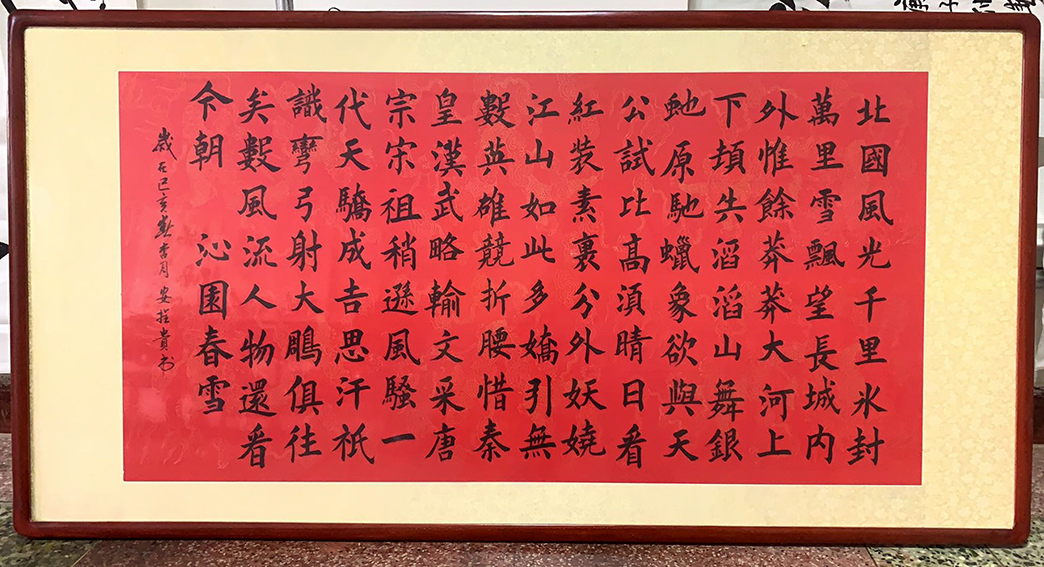 北國風光千里氷封
萬里雪飄望長城内
外惟餘莽莽大河上
下頓失滔滔山舞銀
虵原馳蠟象欲與天
公試比高湏晴日看
紅裝素裏分外妖嬈
江山如此多嬌引無
數英雄競折腰惜秦
皇漢武略輸文采唐
宗宋祖稍遜風騷一
代天驕成吉思汗祇
識彎弓射大鵰俱往
矣數風流人物還看
今朝 沁園春雪
歲在己亥月 安拴貴书